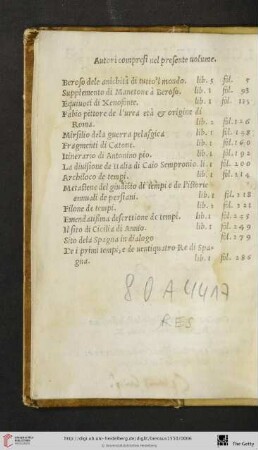 Autori compresi nel presente volume.
Beroso dele antichità di tutto'l mondo. lib. 5 fol.
Supplemento di Manetone à Beroso. lib. 1 fol. 98
Equiuoci di Xenofonte. lib. 1 fol. 113
Fabio pittore de l'aurea età & origine di
Roma. lib. 2 fol. 126
Mirsilio dela guerra pelasgica lib. 1 fol.
Fragmenti di Catone. lib. 1 fol.
Itinerario di Antonino pio. lib. 1 fol.
La diuisione de Italia di Caio Sempronio. lib. 1 fol.
Archiloco de tempi. lib. 1 fol. 214
Metastene del giuditio di tempi e de l'istorie
annali de persiani. lib. 1 fol. 218
Filone de tempi. lib. 1 fol. 221
Emendatissima disertione de tempi. lib. 1 fol.
Il sito di Cicilia di Annio. lib. 1 fol. 249
Sito dela Spagna in dialogo fol. 279
De i primi tempi, e de uentiquatro Re di Spa-
gna. lib. 1 fol. 286
8° A 4417
RES
The Getty